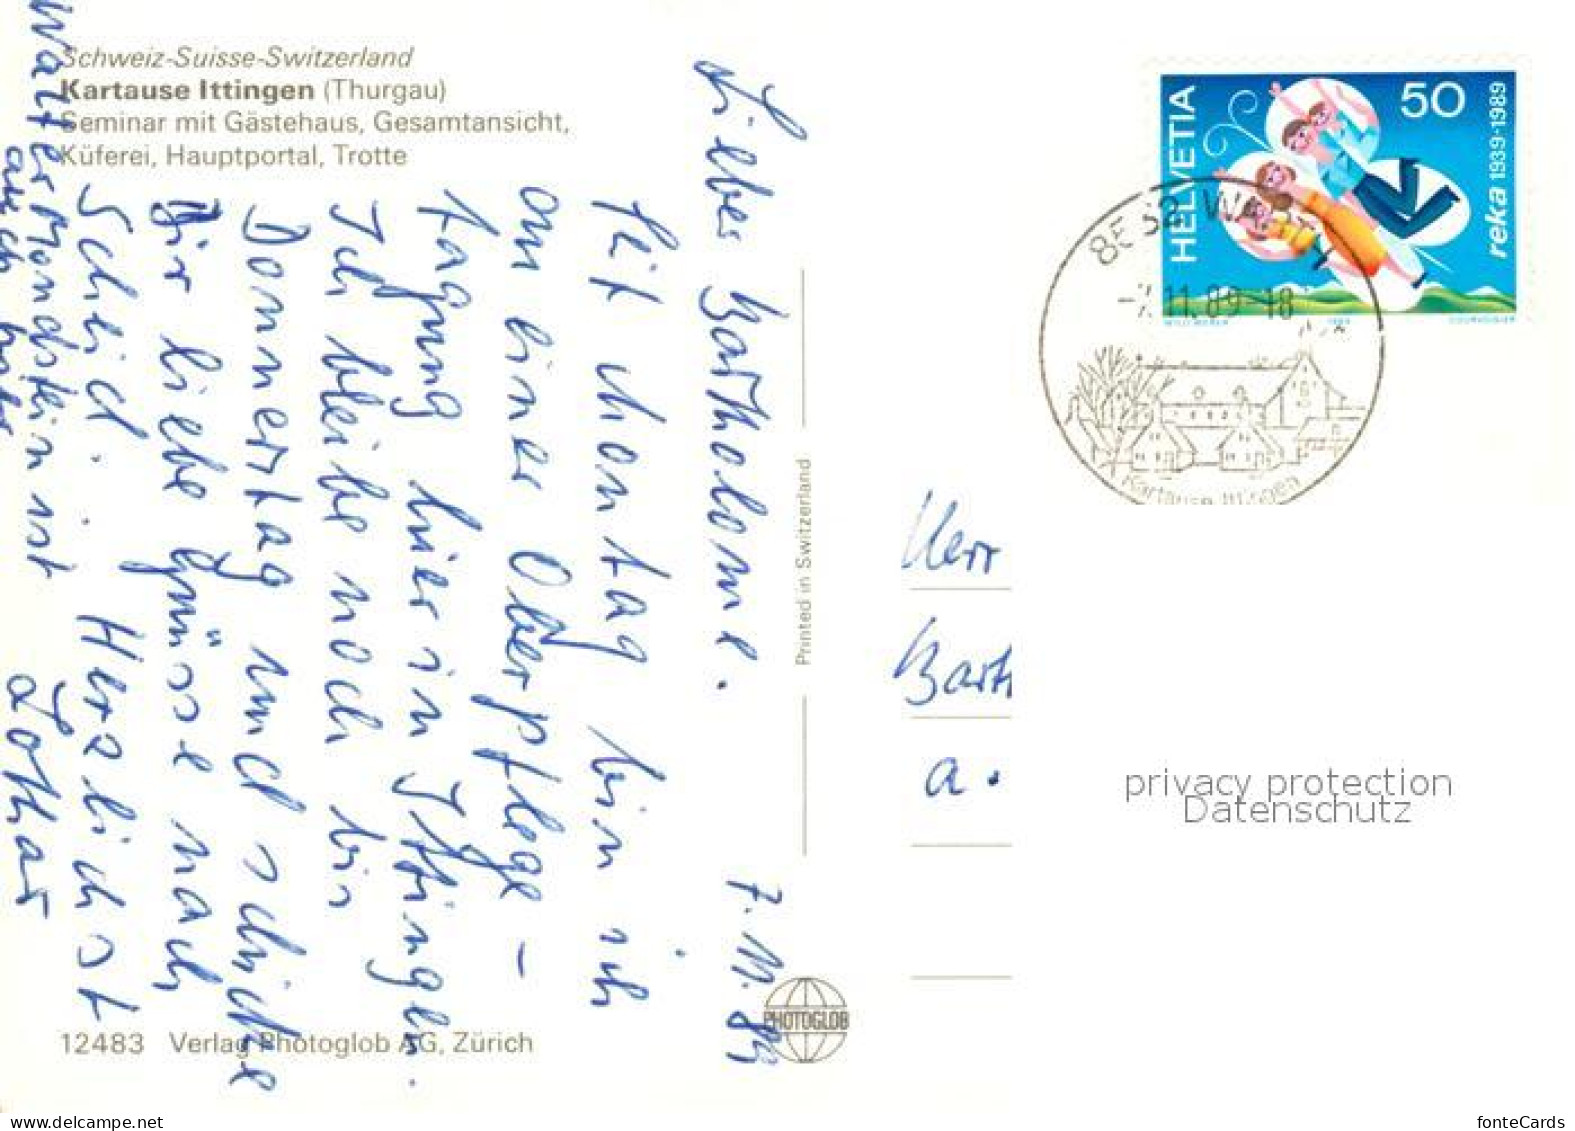 Schweiz-Suisse-Switzerland
Kartause Ittingen (Thurgau)
Seminar mit Gästehaus, Gesamtansicht,
Küferei, Hauptportal, Trotte
7.11.89
Lieber Bartholome.
Seit Montag bin ich
an einer Oberpflege-
tagung hier in Ittingen.
Ich bleibe noch bis
Donnerstag und schicke
Dir liebe Grüsse nach
Schlid. Herzlichst
Lothar
Walter Mondstein ist
auch hier
12483 Verlag Photoglob AG, Zürich
Printed in Switzerland
PHOTOGLOB
HELVETIA
50
reka 1939-1989
1989
COURVOISIER
WART
-7.11.89-18
Kartause Ittingen
Herr
Barth
a.
privacy protection
Datenschutz
www.delcampe.net
fonteCards